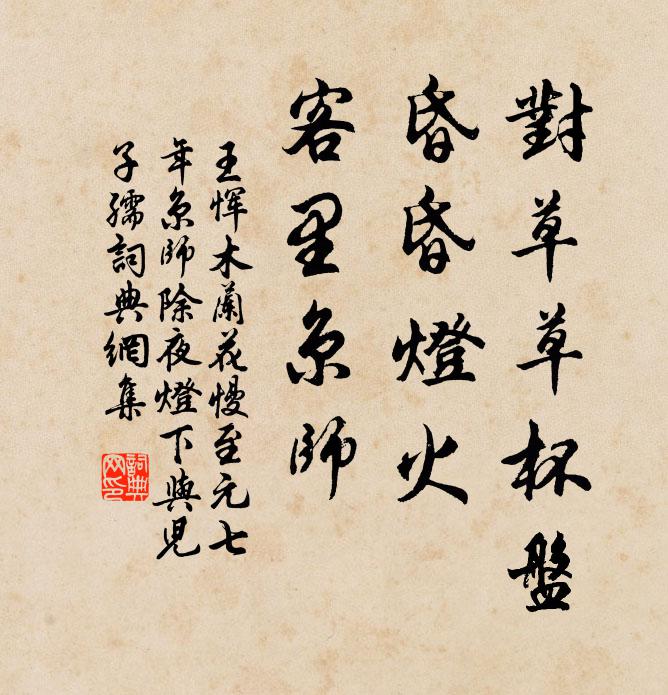 對草草杯盤
昏昏燈火
客里京師
王惲木蘭花慢至元七
年京師除夜燈下與児
子孺詞典網集
詞典网印